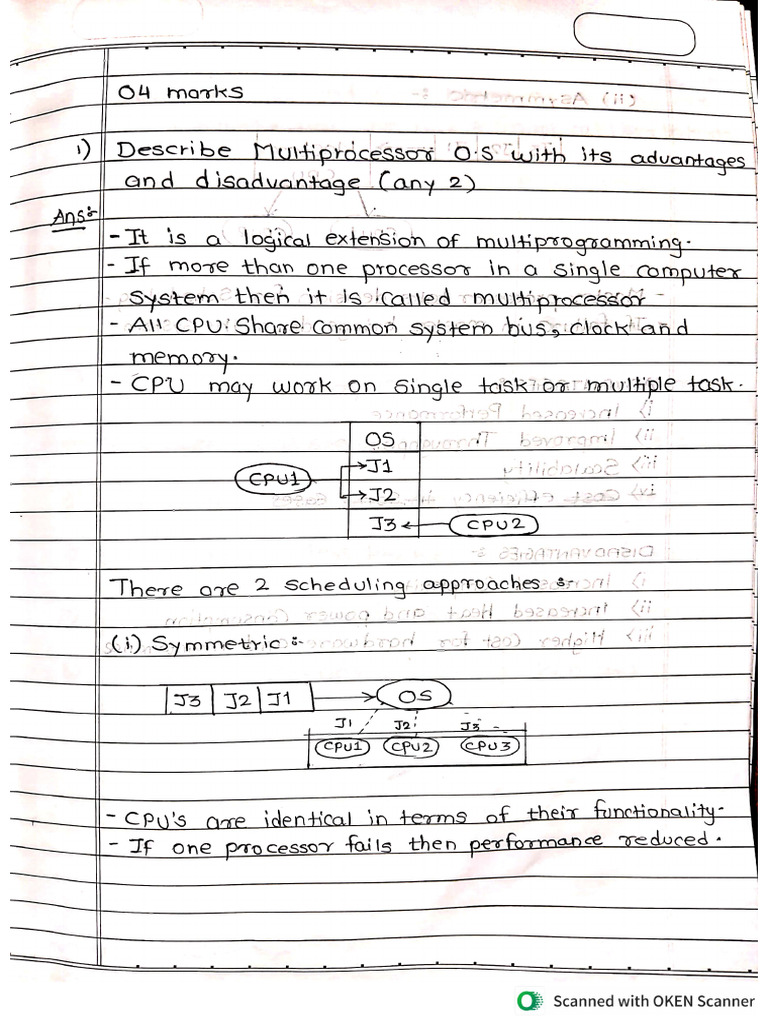 04 marks
1) Describe Multiprocessor O.S with its advantages
and disadvantage (any 2)
Ans:-
- It is a logical extension of multiprogramming.
- If more than one processor in a single computer
system then it is called multiprocessor
- All CPU Share common system bus, clock and
memory.
- CPU may work on single task or multiple task.
OS
J1
CPU1
J2
J3
CPU2
There are 2 scheduling approaches :-
(i) Symmetric :-
J3 J2 J1
OS
J1 J2 J3
CPU1 CPU2 CPU3
- CPU's are identical in terms of their functionality.
- If one processor fails then performance reduced.
Scanned with OKEN Scanner